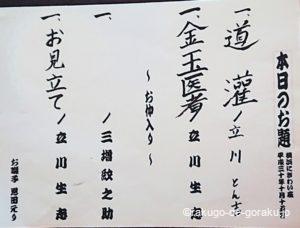 本日のお題
横浜にぎわい座
平成三十年十月十五日
一、道灌 / 立川 とん志
一、金玉医者 / 立川 生志
〜お仲入り〜
一、 / 三増紋之助
一、お見立て / 立川 生志
お囃子 恩田えり
rakugo-de-goraku.jp